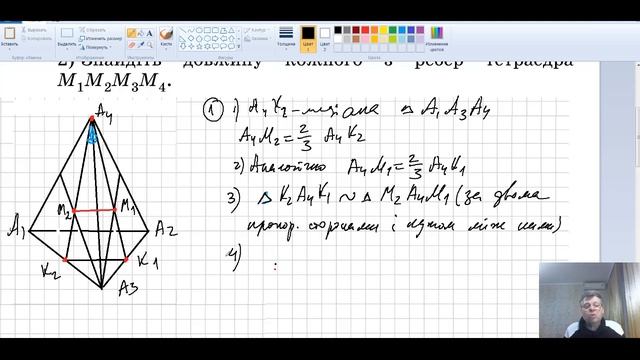 Вставить
Вырезать
Копировать
Выделить
Обрезать
Изменить размер
Повернуть
Кисти
Толщина
Цвет 1
Цвет 2
Изменение цветов
Буфер обмена
Изображение
Инструменты
Фигуры
Цвета
2) Знайдіть довжину кожного з ребер тетраедра
M₁M₂M₃M₄.
A₄
M₂ M₁
A₁ A₂
K₂ K₁
A₃
① 1) A₄K₂ – медіана △ A₁A₃A₄
A₄M₂ = 2/3 A₄K₂
2) Аналогічно A₄M₁ = 2/3 A₄K₁
3) △ K₂A₄K₁ ~ △ M₂A₄M₁ (за двома
пропор. сторонами і кутом між ними)
4)